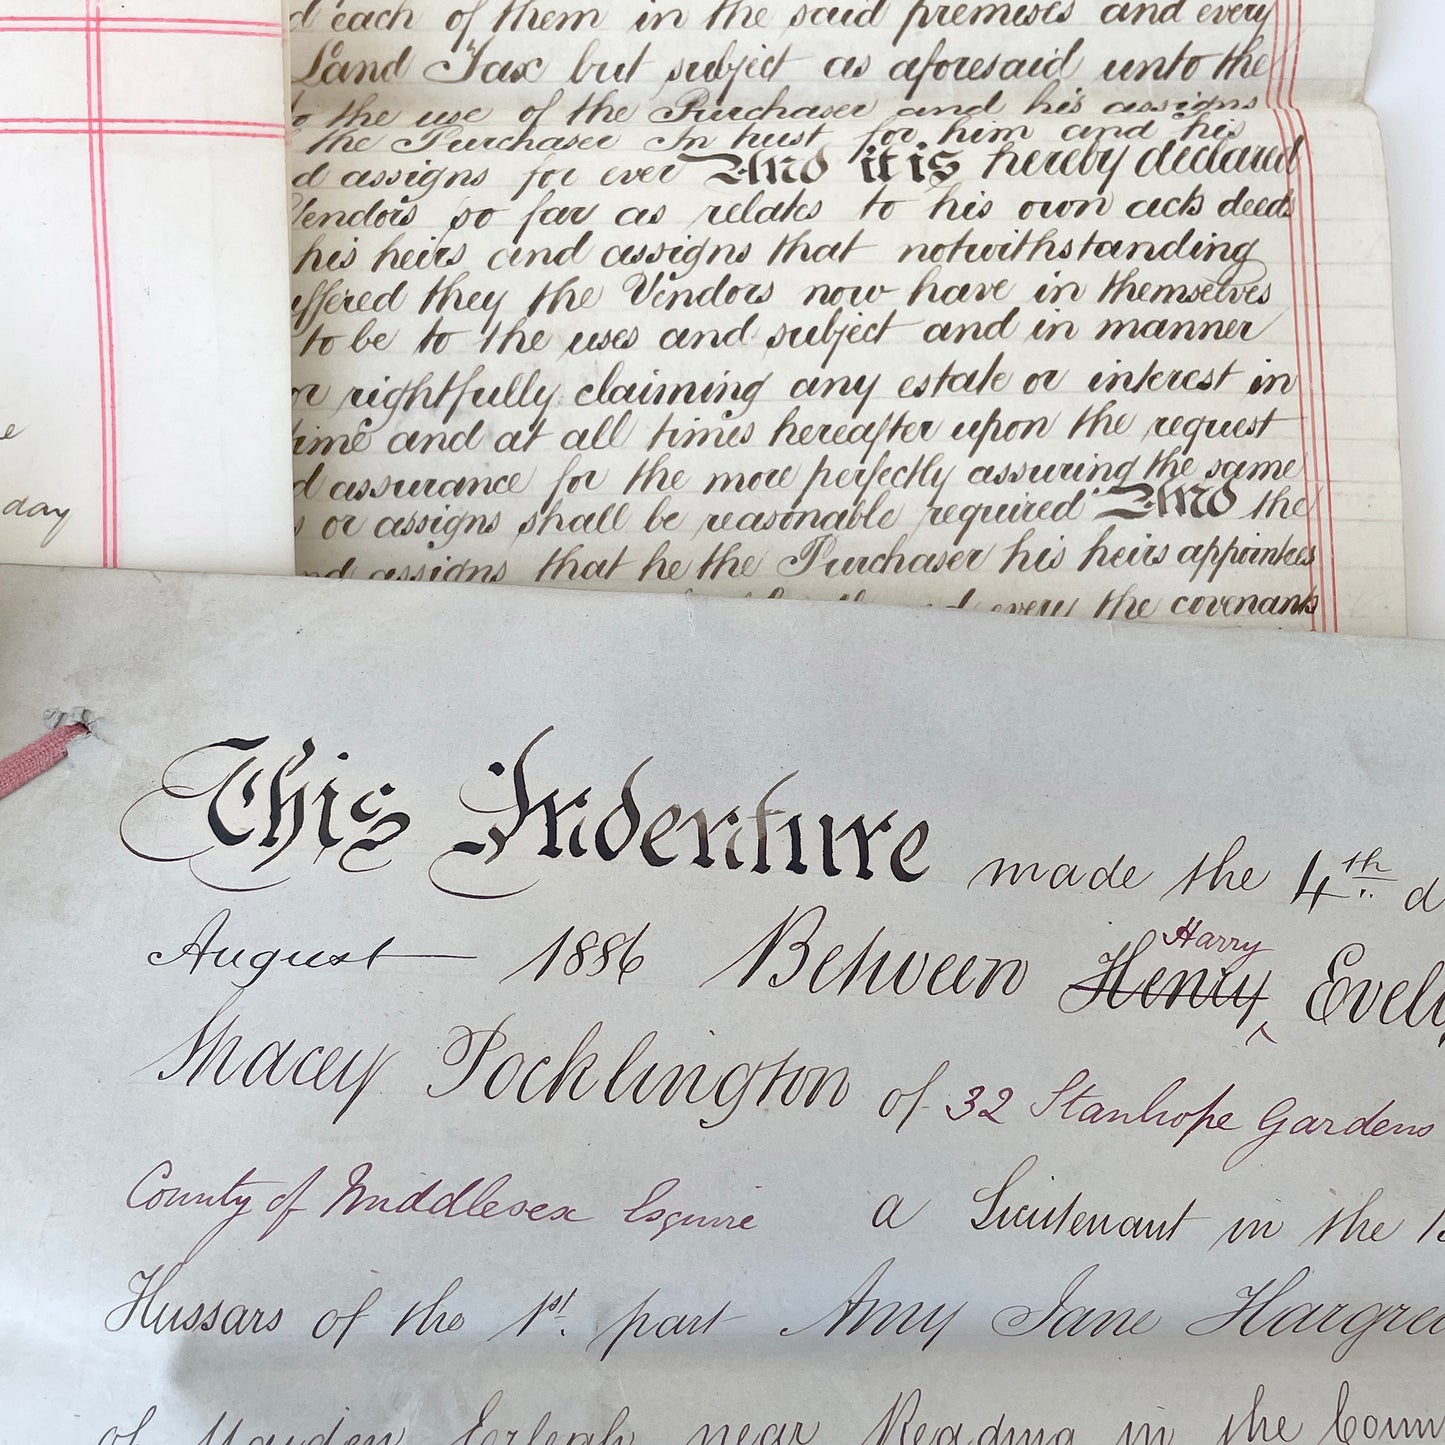 each of them in the said premises and every
Land Tax but subject as aforesaid unto the
to the use of the Purchaser and his assigns
the Purchaser In trust for him and his
assigns for ever And it is hereby declared
Vendors so far as relates to his own acts deeds
his heirs and assigns that notwithstanding
uffered they the Vendors now have in themselves
to be to the uses and subject and in manner
or rightfully claiming any estate or interest in
time and at all times hereafter upon the request
d assurance for the more perfectly assuring the same
s or assigns shall be reasonable required And the
nd assigns that he the Purchaser his heirs appointees
every the covenants
e
day
This Indenture made the 4th d
August 1886 Between Henry Harry Evely
Macey Pocklington of 32 Stanhope Gardens
County of Middlesex Esquire a Lieutenant in the 1
Hussars of the 1st. part Amy Jane Hargre
of Maiden Erlegh near Reading in the Coun